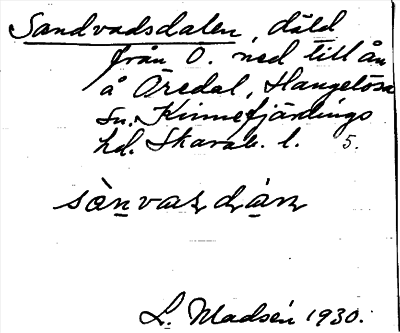 Sandvadsdalen, däld
från O. ned till ån
å Öredal, Hangelösa
sn. Kinnefjärdings
hd. Skarab. l. 5.
L. Madsén 1930.